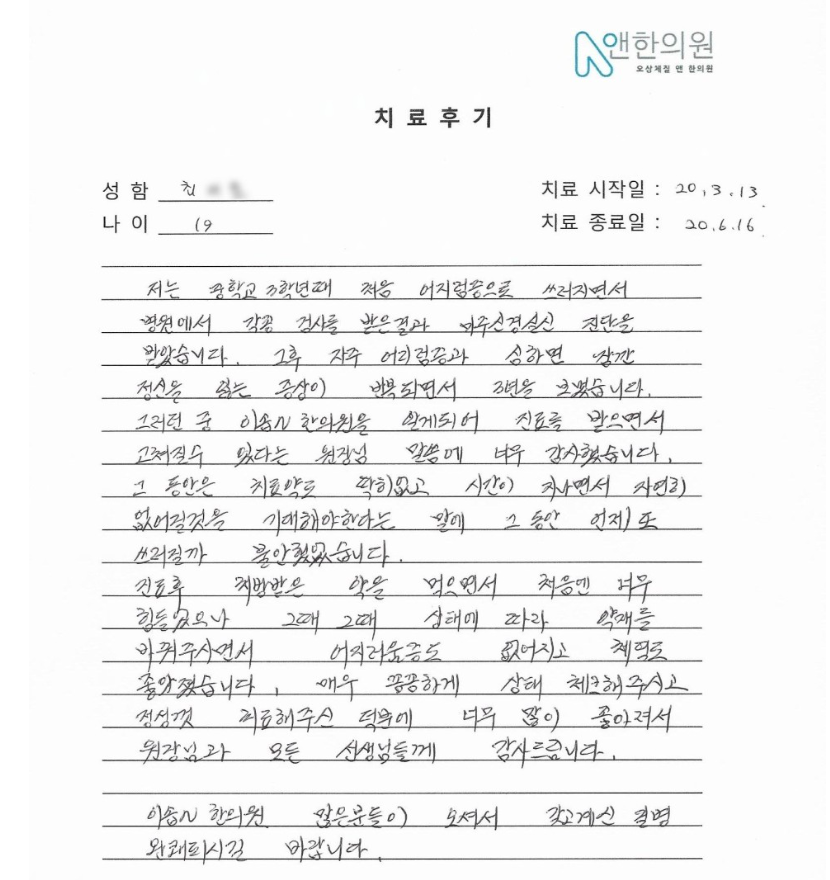 앤한의원
오상체질 앤 한의원
치료후기
성 함 최
치료 시작일 : 20.3.13
나 이 19
치료 종료일 : 20.6.16
저는 중학교 3학년때 처음 어지럼증으로 쓰러지면서
병원에서 각종 검사를 받은결과 미주신경실신 진단을
받았습니다. 그후 자주 어지럼증과 심하면 잠깐
정신을 잃는 증상이 반복되면서 3년을 보냈습니다.
그러던 중 이승N 한의원을 알게되어 진료를 받으면서
고쳐질수 있다는 원장님 말씀에 너무 감사했습니다.
그 동안은 치료약도 딱히없고 시간이 지나면서 자연히
없어질것을 기대해야한다는 말에 그 동안 언제 또
쓰러질까 불안했었습니다.
진료후 처방받은 약을 먹으면서 처음엔 너무
힘들었으나 그때 그때 상태에 따라 약재를
바꿔주시면서 어지러움증도 없어지고 체력도
좋아졌습니다. 매우 꼼꼼하게 상태 체크해주시고
정성껏 치료해주신 덕분에 너무 많이 좋아져서
원장님과 모든 선생님들께 감사드립니다.
이승N 한의원 많은분들이 오셔서 갖고계신 질병
완쾌되시길 바랍니다.